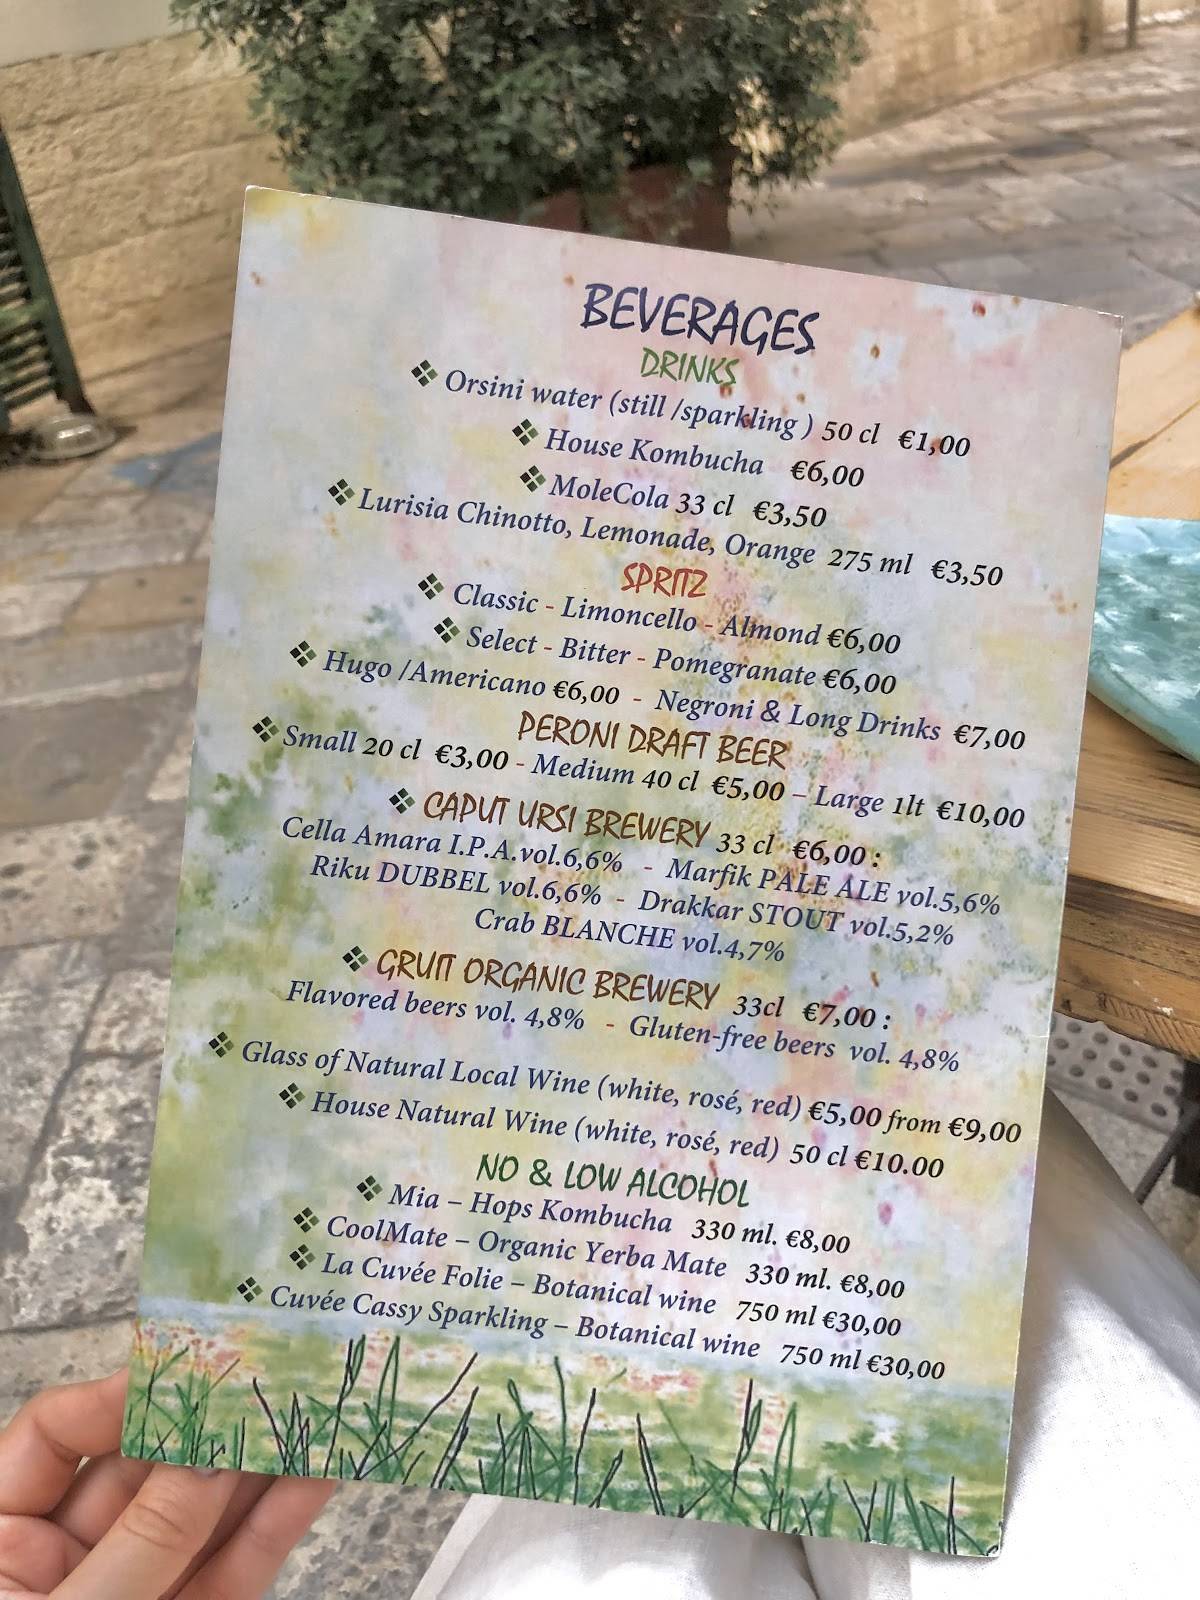 BEVERAGES
DRINKS
❖ Orsini water (still /sparkling ) 50 cl €1,00
❖ House Kombucha €6,00
❖ MoleCola 33 cl €3,50
❖ Lurisia Chinotto, Lemonade, Orange 275 ml €3,50
SPRITZ
❖ Classic - Limoncello - Almond €6,00
❖ Select - Bitter - Pomegranate €6,00
❖ Hugo /Americano €6,00 - Negroni & Long Drinks €7,00
PERONI DRAFT BEER
❖ Small 20 cl €3,00 - Medium 40 cl €5,00 – Large 1lt €10,00
❖ CAPUT URSI BREWERY 33 cl €6,00 :
Cella Amara I.P.A.vol.6,6% - Marfik PALE ALE vol.5,6%
Riku DUBBEL vol.6,6% - Drakkar STOUT vol.5,2%
Crab BLANCHE vol.4,7%
❖ GRUIT ORGANIC BREWERY 33cl €7,00 :
Flavored beers vol. 4,8% - Gluten-free beers vol. 4,8%
❖ Glass of Natural Local Wine (white, rosé, red) €5,00 from €9,00
❖ House Natural Wine (white, rosé, red) 50 cl €10.00
NO & LOW ALCOHOL
❖ Mia – Hops Kombucha 330 ml. €8,00
❖ CoolMate – Organic Yerba Mate 330 ml. €8,00
❖ La Cuvée Folie – Botanical wine 750 ml €30,00
❖ Cuvée Cassy Sparkling – Botanical wine 750 ml €30,00